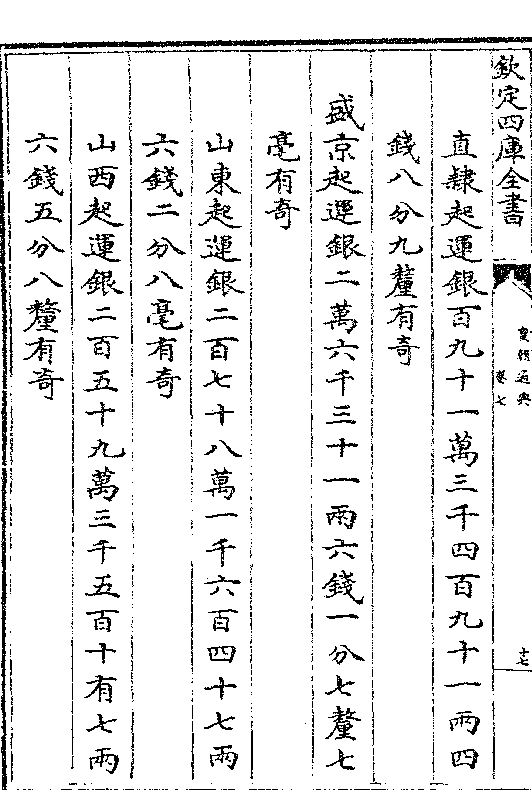 欽定四庫全書
皇朝通典
卷七
十七
直隸起運銀百九十一萬三千四百九十一兩四
錢八分九釐有奇
盛京起運銀二萬六千三十一兩六錢一分七釐七
毫有奇
山東起運銀二百七十八萬一千六百四十七兩
六錢二分八毫有奇
山西起運銀二百五十九萬三千五百十有七兩
六錢五分八釐有奇